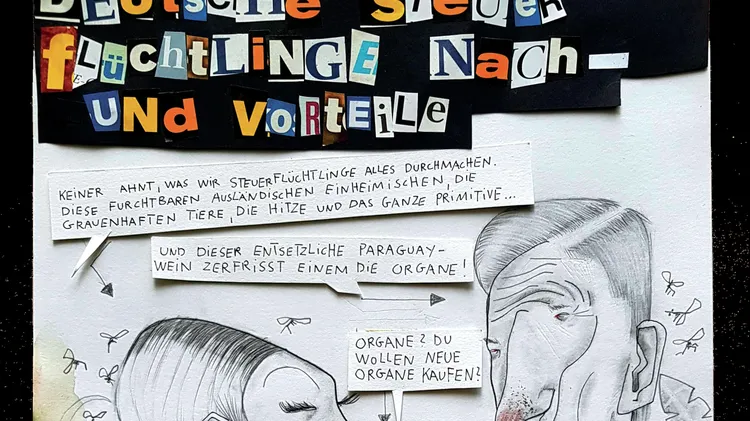 DEUTSCHE STEUER
FLÜCHTLINGE NACH-
UND VORTEILE
KEINER AHNT, WAS WIR STEUERFLÜCHTLINGE ALLES DURCHMACHEN.
DIESE FURCHTBAREN AUSLÄNDISCHEN EINHEIMISCHEN, DIE
GRAUENHAFTEN TIERE, DIE HITZE UND DAS GANZE PRIMITIVE...
UND DIESER ENTSETZLICHE PARAGUAY-
WEIN ZERFRISST EINEM DIE ORGANE!
ORGANE? DU
WOLLEN NEUE
ORGANE KAUFEN?